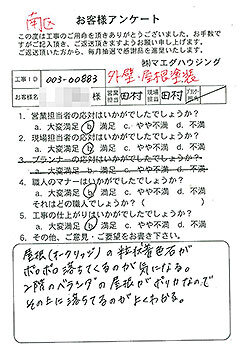 南区
お客様アンケート
この度は工事のご用命を頂きありがとうございました。お手数で
すがご記入頂き、ご返送頂きますようお願い申し上げます。
ご返送頂いた方から、毎月抽選で感謝品を進呈いたします。
㈱マエダハウジング
工事ID 003-00883 外壁・屋根塗装
お客様名 様 営業担当 田村 現場担当 田村 プランナー担当
1. 営業担当者の応対はいかがでしたでしょうか?
a. 大変満足 b. 満足 c. やや不満 d. 不満
2. 現場担当者の応対はいかがでしたでしょうか?
a. 大変満足 b. 満足 c. やや不満 d. 不満
3. プランナーの応対はいかがでしたでしょうか?
a. 大変満足 b. 満足 c. やや不満 d. 不満
4. 職人のマナーはいかがでしたでしょうか?
a. 大変満足 b. 満足 c. やや不満 d. 不満
それはどの職人でしょうか? ( )
5. 工事の仕上がりはいかがでしたでしょうか?
a. 大変満足 b. 満足 c. やや不満 d. 不満
6. その他、ご意見・ご要望をお書き下さい。
屋根(オークリッジ)の粒状着色石が
ポロポロ落ちてくるのが気になる。
2階のベランダの屋根がポリカなので
その上に落ちてるのがよくわかる。